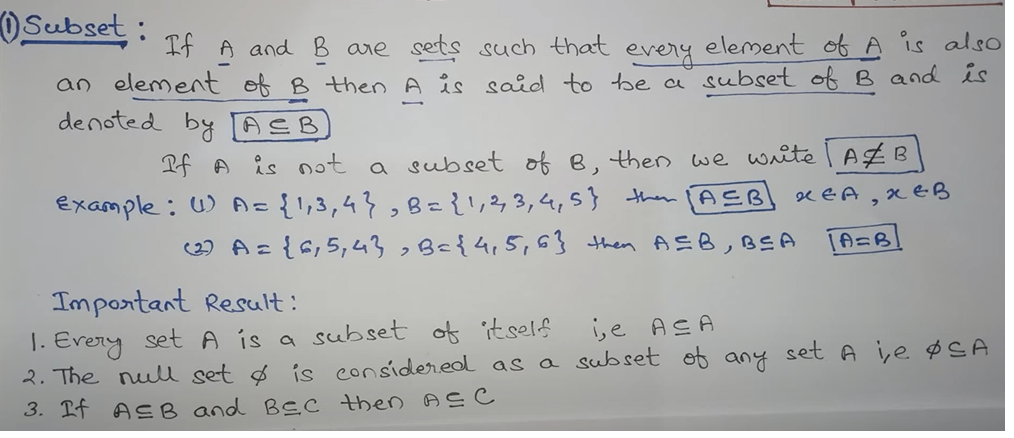 ① Subset :
If A and B are sets such that every element of A is also
an element of B then A is said to be a subset of B and is
denoted by A ⊆ B
If A is not a subset of B, then we write A ⊈ B
Example : (1) A = {1,3,4} , B = {1,2,3,4,5} then A ⊆ B x ∈ A , x ∈ B
(2) A = {6,5,4} , B = {4,5,6} then A ⊆ B , B ⊆ A A = B
Important Result :
1. Every set A is a subset of itself i,e A ⊆ A
2. The null set ϕ is considered as a subset of any set A i,e ϕ ⊆ A
3. If A ⊆ B and B ⊆ C then A ⊆ C